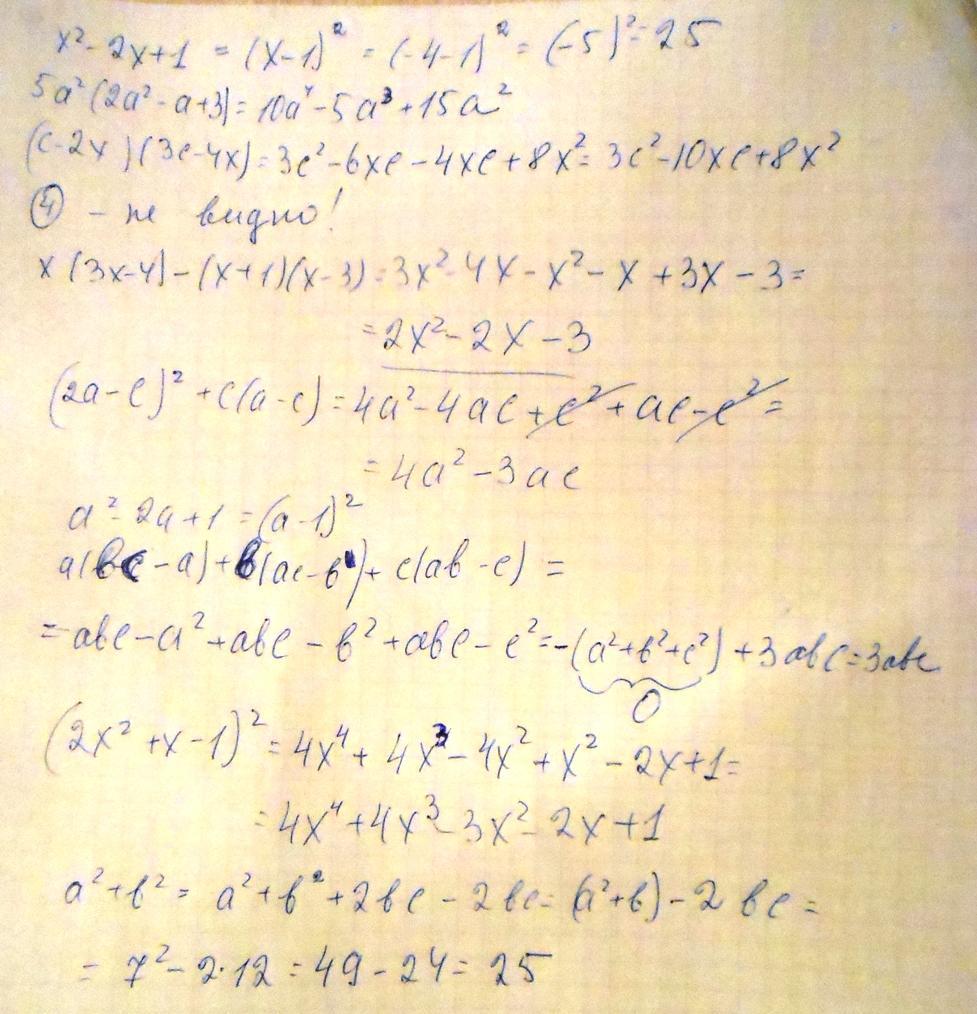 x² - 2x + 1 = (x-1)² = (-4-1)² = (-5)² = 25
5a² (2a² - a + 3) = 10a⁴ - 5a³ + 15a²
(c - 2x)(3c - 4x) = 3c² - 6xc - 4xc + 8x² = 3c² - 10xc + 8x²
④ - не видно!
x (3x-4) - (x+1)(x-3) = 3x² - 4x - x² - x + 3x - 3 =
= 2x² - 2x - 3
(2a - c)² + c(a - c) = 4a² - 4ac + c² + ac - c² =
= 4a² - 3ac
a² - 2a + 1 = (a-1)²
a(bc - a) + b(ac - b) + c(ab - c) =
= abc - a² + abc - b² + abc - c² = -(a² + b² + c²) + 3abc = 3abc
0
(2x² + x - 1)² = 4x⁴ + 4x³ - 4x² + x² - 2x + 1 =
= 4x⁴ + 4x³ - 3x² - 2x + 1
a² + b² = a² + b² + 2bc - 2bc = (a² + b) - 2bc =
= 7² - 2·12 = 49 - 24 = 25